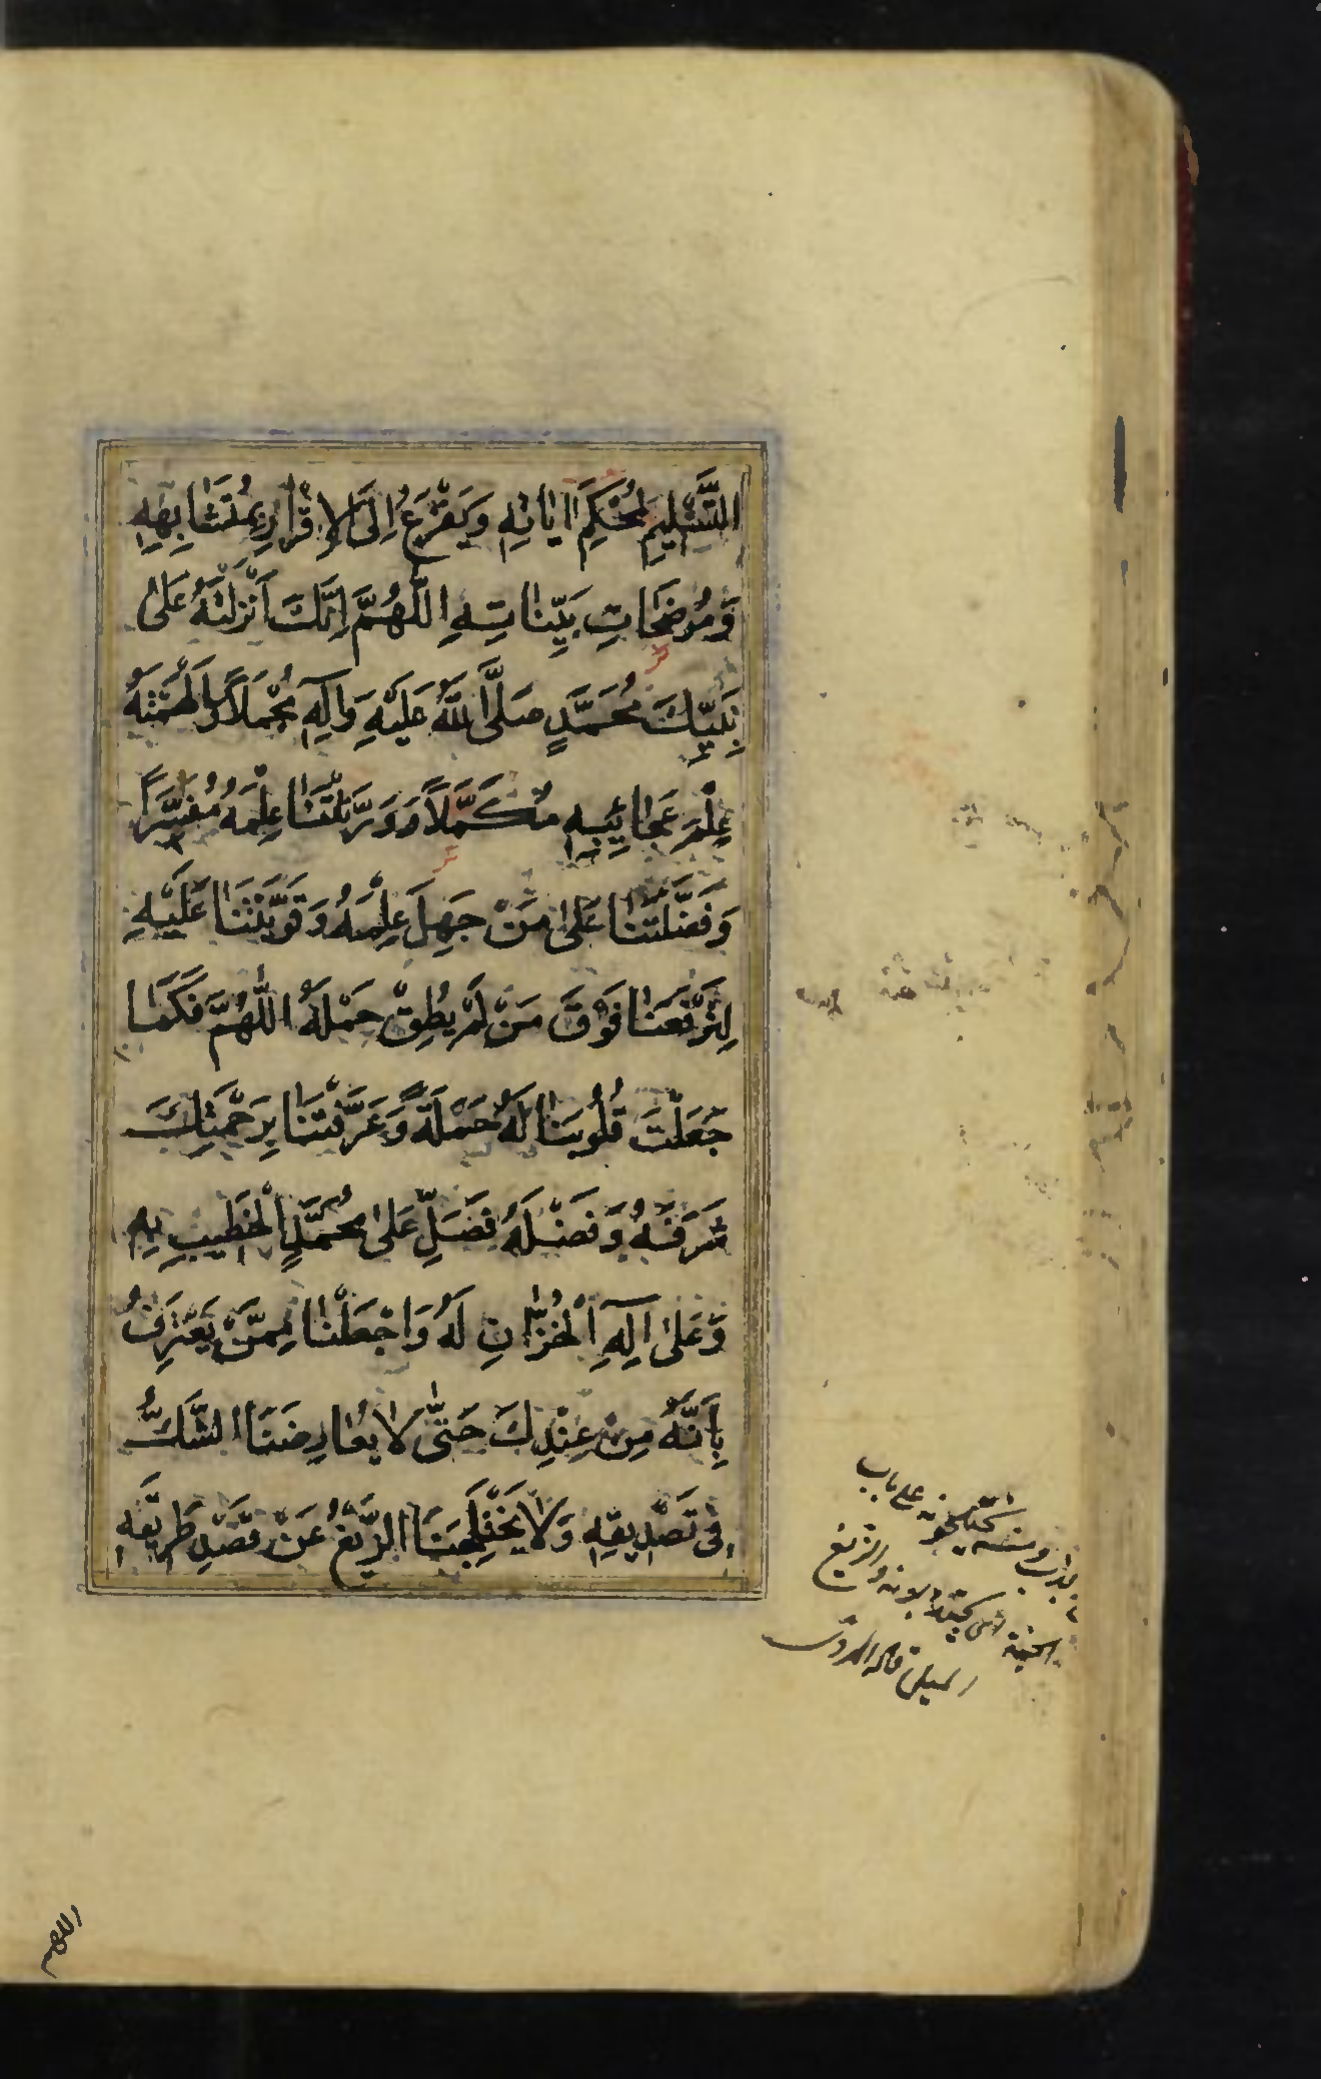 التَّسْلِيمِ لِمُحْكَمِ اٰيَاتِهِ وَيَفْزَعُ اِلَى الْاِقْرَارِ بِمُتَشَابِهِهِ
وَمُوضَحَاتِ بَيِّنَاتِهِ اَللّٰهُمَّ اِنَّكَ اَنْزَلْتَهُ عَلٰى
نَبِيِّكَ مُحَمَّدٍ صَلَّى اللّٰهُ عَلَيْهِ وَاٰلِهِ مُجْمَلًا وَاَلْهَمْتَهُ
عِلْمَ عَجَائِبِهِ مُكَمَّلًا وَوَرَّثْتَنَا عِلْمَهُ مُفَسَّرًا
وَفَضَّلْتَنَا عَلٰى مَنْ جَهِلَ عِلْمَهُ وَقَوَّيْتَنَا عَلَيْهِ
لِتَرْفَعَنَا فَوْقَ مَنْ لَمْ يُطِقْ حَمْلَهُ اَللّٰهُمَّ فَكَمَا
جَعَلْتَ قُلُوبَنَا لَهُ حَمَلَةً وَعَرَّفْتَنَا بِرَحْمَتِكَ
شَرَفَهُ وَفَضْلَهُ فَصَلِّ عَلٰى مُحَمَّدٍ الْخَطِيبِ بِهِ
وَعَلٰى اٰلِهِ الْخُزَّانِ لَهُ وَاجْعَلْنَا مِمَّنْ يَعْتَرِفُ
بِاَنَّهُ مِنْ عِنْدِكَ حَتّٰى لَا يُعَارِضَنَا الشَّكُّ
فِى تَصْدِيقِهِ وَلَا يَخْتَلِجَنَا الزَّيْغُ عَنْ قَصْدِ طَرِيقِهِ
على باب
والزيغ
الميل قاله الهروى
اللهم